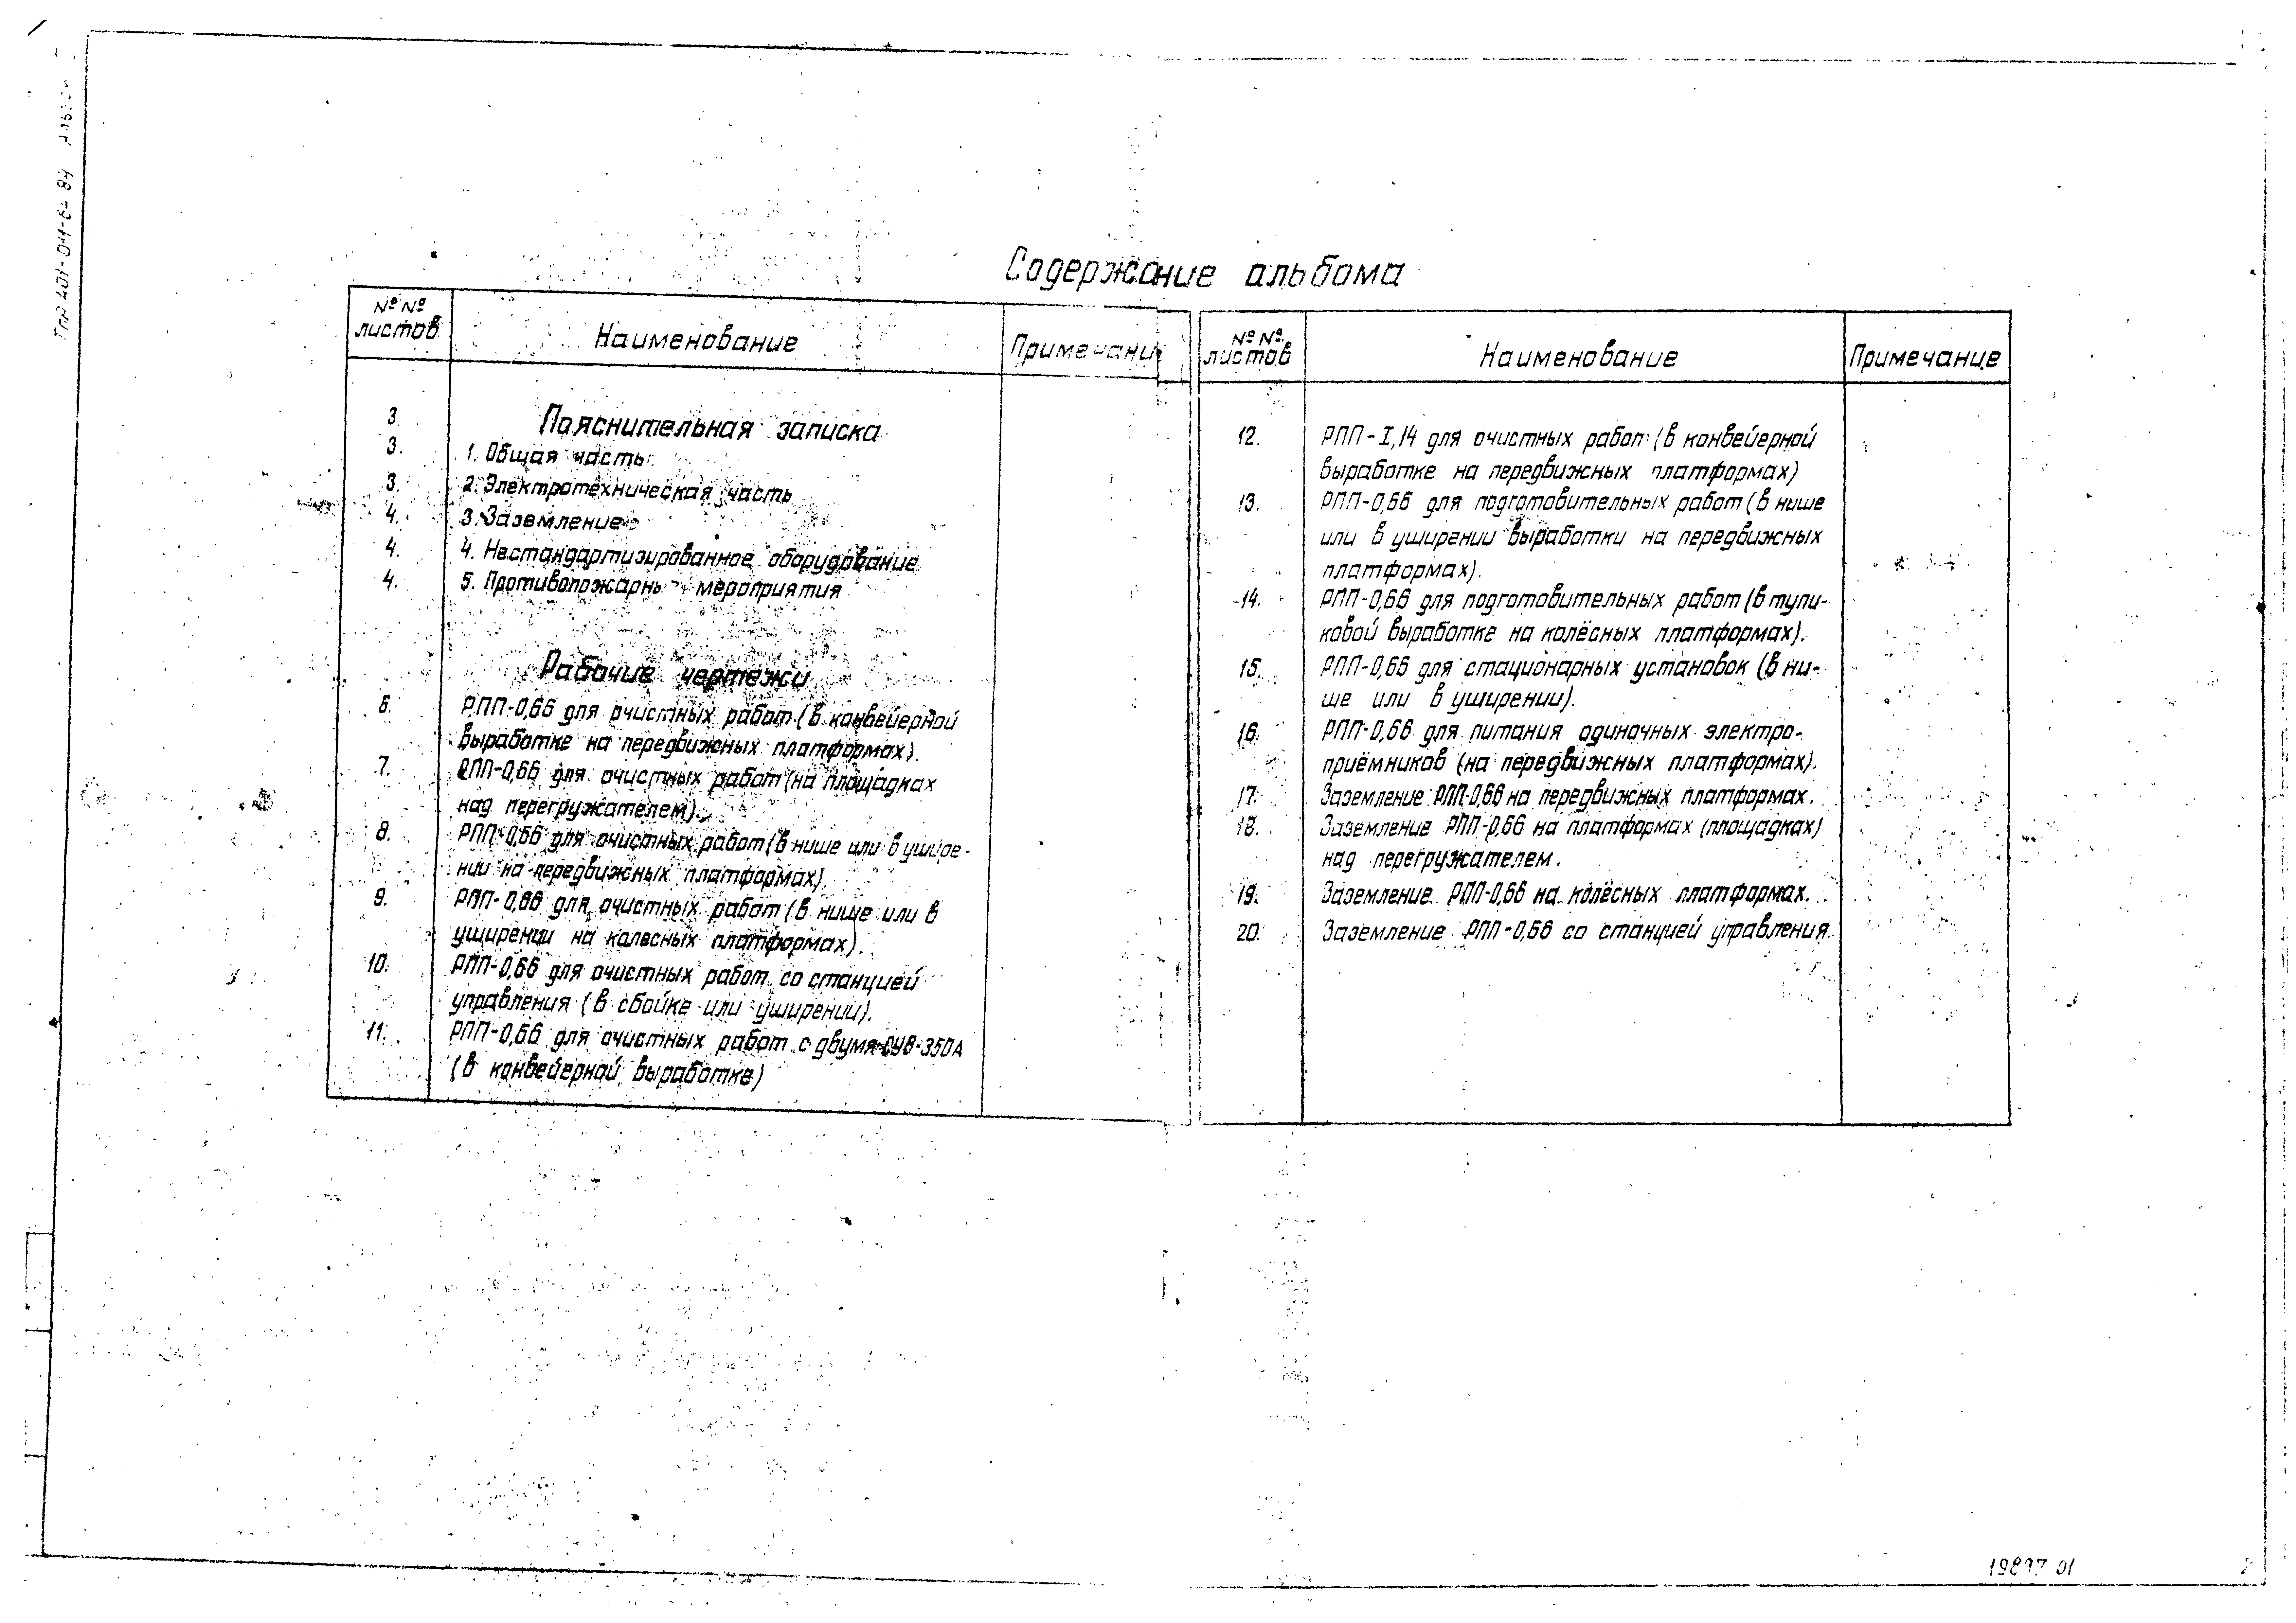 Содержание альбома
№ №
листов
Наименование
Примечани
3. Пояснительная записка
3. 1. Общая часть
3. 2. Электротехническая часть
4. 3. Заземление
4. 4. Нестандартизированное оборудование
4. 5. мероприятия
Рабочие чертежи
6. РПП-0,66 для очистных работ (в конвейерной
выработке на передвижных платформах).
7. РПП-0,66 для очистных работ (на площадках
над перегружателем).
8. РПП-0,66 для очистных работ (в нише или в ушире-
нии на передвижных платформах).
9. РПП-0,66 для очистных работ (в нише или в
уширении на колесных платформах).
10. РПП-0,66 для очистных работ со станцией
управления (в сбойке или уширении).
11. РПП-0,66 для очистных работ с двумя СУВ-350А
(в конвейерной выработке)
№ №
листов
Наименование
Примечание
12. РПП-I,14 для очистных работ (в конвейерной
выработке на передвижных платформах)
13. РПП-0,66 для подготовительных работ (в нише
или в уширении выработки на передвижных
платформах).
14. РПП-0,66 для подготовительных работ (в тупи-
ковой выработке на колёсных платформах).
15. РПП-0,66 для стационарных установок (в ни-
ше или в уширении).
16. РПП-0,66 для питания одиночных электро-
приёмников (на передвижных платформах).
17. Заземление РПП-0,66 на передвижных платформах.
18. Заземление РПП-0,66 на платформах (площадках)
над перегружателем.
19. Заземление РПП-0,66 на колёсных платформах.
20. Заземление РПП-0,66 со станцией управления.
19897 01
2